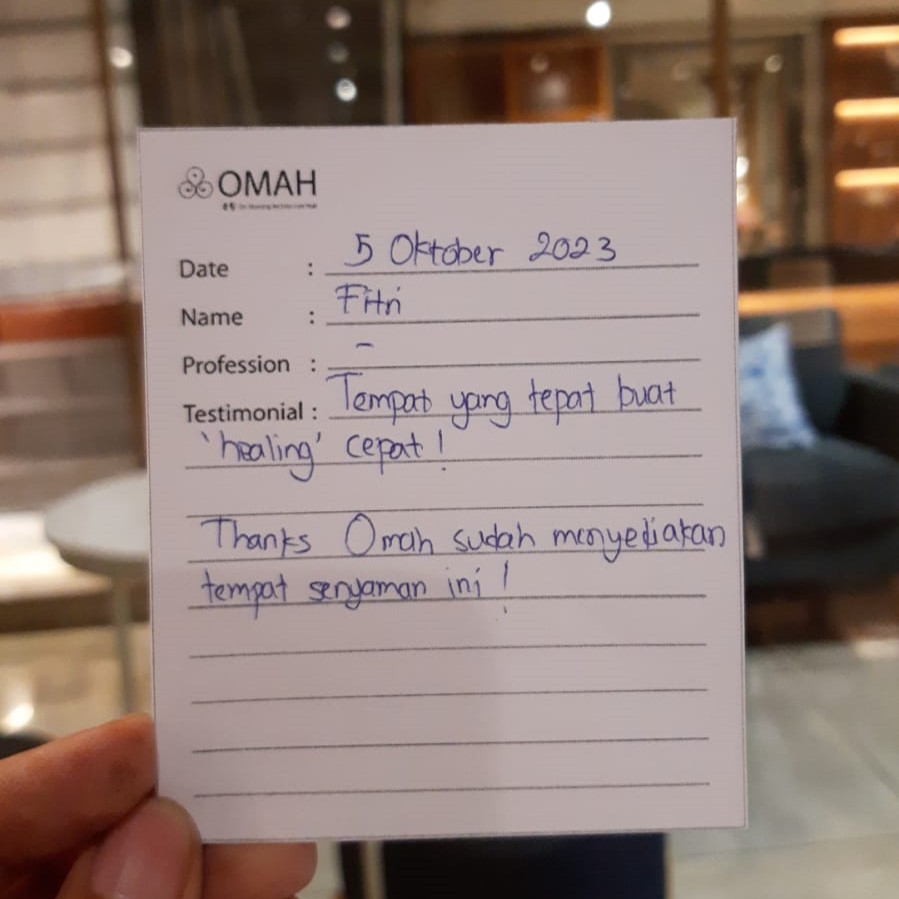 OMAH
Date : 5 Oktober 2023
Name : Fitri
Profession : -
Testimonial : Tempat yang tepat buat
'healing' cepat!
Thanks Omah sudah menyediakan
tempat senyaman ini!